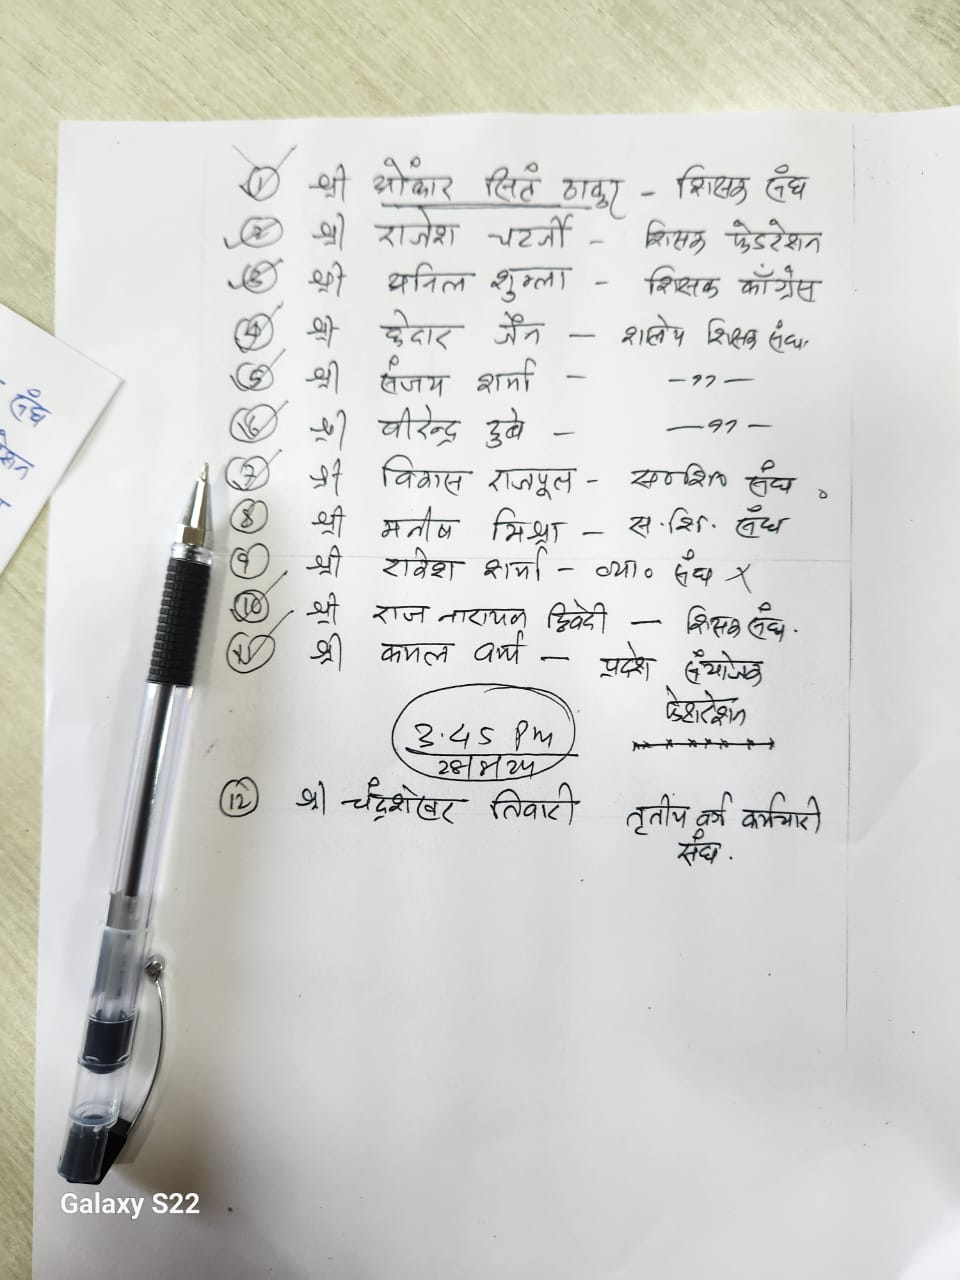 1 श्री ओंकार सिंह ठाकुर - शिक्षक संघ
2 श्री राजेश चटर्जी - शिक्षक फेडरेशन
3 श्री अनिल शुक्ला - शिक्षक काँग्रेस
4 श्री केदार जैन - शालेय शिक्षक संघ.
5 श्री संजय शर्मा - -,,-
6 श्री वीरेन्द्र दुबे - -,,-
7 श्री विकास राजपूत - संघ.
8 श्री मनीष मिश्रा - स.शि. संघ
9 श्री राकेश शर्मा - व्या० संघ X
10 श्री राज नारायण द्विवेदी - शिक्षक संघ.
11 श्री कमल वर्मा - प्रदेश संयोजक
फेडरेशन
3.45 Pm
28/8/24
12 श्री चंद्रशेखर तिवारी तृतीय वर्ग कर्मचारी
संघ.
संघ
Galaxy S22